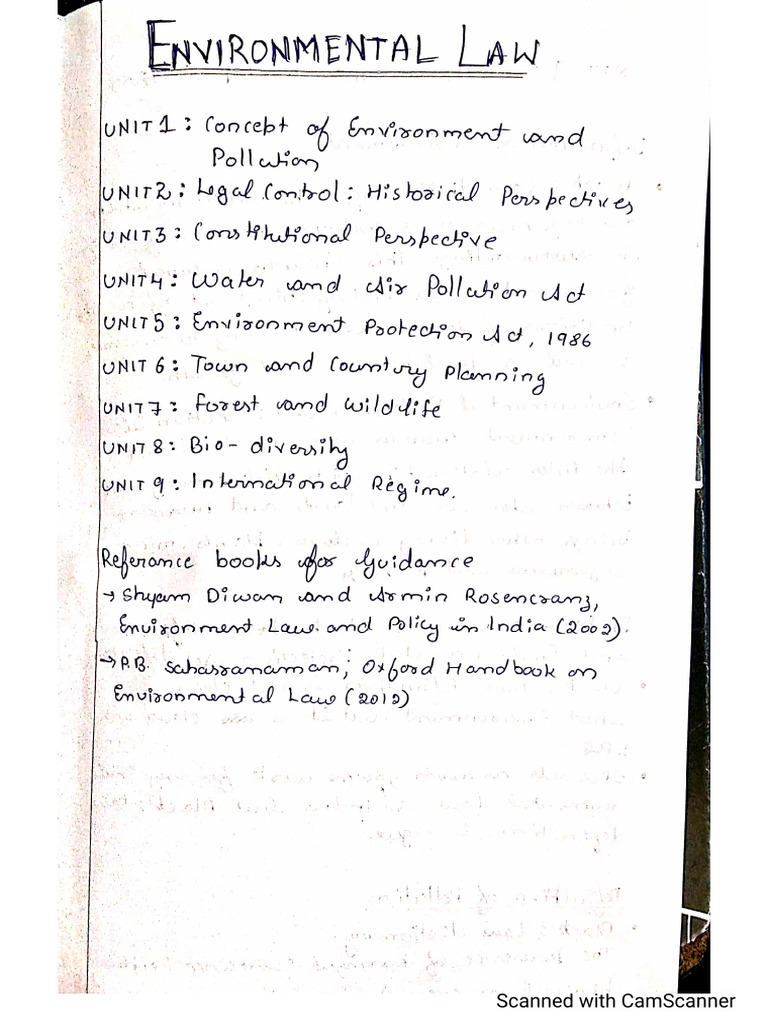 ENVIRONMENTAL LAW
UNIT 1: Concept of Environment and
Pollution
UNIT 2: Legal Control: Historical Perspectives
UNIT 3: Constitutional Perspective
UNIT 4: Water and Air Pollution Act
UNIT 5: Environment Protection Act, 1986
UNIT 6: Town and Country Planning
UNIT 7: Forest and Wildlife
UNIT 8: Bio-diversity
UNIT 9: International Regime.
Referance books for Guidance
→ Shyam Diwan and Armin Rosencranz,
Environment Law and Policy in India (2002).
→ P.B. Sahasranaman; Oxford Handbook on
Environmental Law (2012)
Scanned with CamScanner